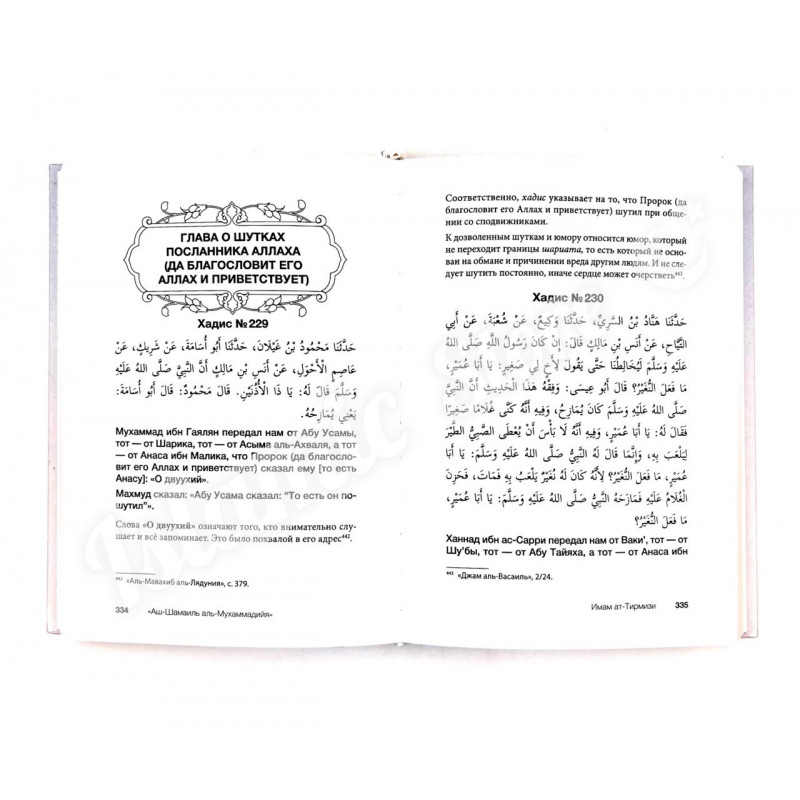 ГЛАВА О ШУТКАХ
ПОСЛАННИКА АЛЛАХА
(ДА БЛАГОСЛОВИТ ЕГО
АЛЛАХ И ПРИВЕТСТВУЕТ)
Хадис №229
حَدَّثَنَا مَحْمُودُ بْنُ غَيْلَانَ، حَدَّثَنَا أَبُو أُسَامَةَ، عَنْ شَرِيكٍ، عَنْ
عَاصِمٍ الْأَحْوَلِ، عَنْ أَنَسِ بْنِ مَالِكٍ أَنَّ النَّبِيَّ صَلَّى اللهُ عَلَيْهِ
وَسَلَّمَ قَالَ لَهُ: يَا ذَا الْأُذُنَيْنِ. قَالَ مَحْمُودٌ: قَالَ أَبُو أُسَامَةَ:
يَعْنِي يُمَازِحُهُ.
Мухаммад ибн Гаялян передал нам от Абу Усамы,
тот — от Шарика, тот — от Асыма аль-Ахваля, а тот
— от Анаса ибн Малика, что Пророк (да благосло-
вит его Аллах и приветствует) сказал ему [то есть
Анасу]: «О двуухий».
Махмуд сказал: «Абу Усама сказал: "То есть он по-
шутил"».
Слова «О двуухий» означают того, кто внимательно слу-
шает и всё запоминает. Это было похвалой в его адрес⁴⁴².
⁴⁴² «Аль-Мавахиб аль-Лядуния», с. 379.
334 «Аш-Шамаиль аль-Мухаммадийя»
Соответственно, хадис указывает на то, что Пророк (да
благословит его Аллах и приветствует) шутил при обще-
нии со сподвижниками.
К дозволенным шуткам и юмору относится юмор, который
не переходит границы шариата, то есть который не осно-
ван на обмане и причинении вреда другим людям. И не сле-
дует шутить постоянно, иначе сердце может очерстветь⁴⁴³.
Хадис №230
حَدَّثَنَا هَنَّادُ بْنُ السَّرِيِّ، حَدَّثَنَا وَكِيعٌ، عَنْ شُعْبَةَ، عَنْ أَبِي
التَّيَّاحِ، عَنْ أَنَسِ بْنِ مَالِكٍ قَالَ: إِنْ كَانَ رَسُولُ اللَّهِ صَلَّى اللهُ
عَلَيْهِ وَسَلَّمَ لَيُخَالِطُنَا حَتَّى يَقُولَ لِأَخٍ لِي صَغِيرٍ: يَا أَبَا عُمَيْرٍ،
مَا فَعَلَ النُّغَيْرُ؟ قَالَ أَبُو عِيسَى: وَفِقْهُ هَذَا الْحَدِيثِ أَنَّ النَّبِيَّ
صَلَّى اللهُ عَلَيْهِ وَسَلَّمَ كَانَ يُمَازِحُ، وَفِيهِ أَنَّهُ كَنَّى غُلَامًا صَغِيرًا
فَقَالَ لَهُ: يَا أَبَا عُمَيْرٍ، وَفِيهِ أَنَّهُ لَا بَأْسَ أَنْ يُعْطَى الصَّبِيُّ الطَّيْرَ
لِيَلْعَبَ بِهِ، وَإِنَّمَا قَالَ لَهُ النَّبِيُّ صَلَّى اللهُ عَلَيْهِ وَسَلَّمَ: يَا أَبَا
عُمَيْرٍ، مَا فَعَلَ النُّغَيْرُ؟ لِأَنَّهُ كَانَ لَهُ نُغَيْرٌ يَلْعَبُ بِهِ فَمَاتَ، فَحَزِنَ
الْغُلَامُ عَلَيْهِ فَمَازَحَهُ النَّبِيُّ صَلَّى اللهُ عَلَيْهِ وَسَلَّمَ: يَا أَبَا عُمَيْرٍ،
مَا فَعَلَ النُّغَيْرُ؟
Ханнад ибн ас-Сарри передал нам от Ваки', тот — от
Шу'бы, тот — от Абу Тайяха, а тот — от Анаса ибн
⁴⁴³ «Джам аль-Васаиль», 2/24.
Имам ат-Тирмизи 335